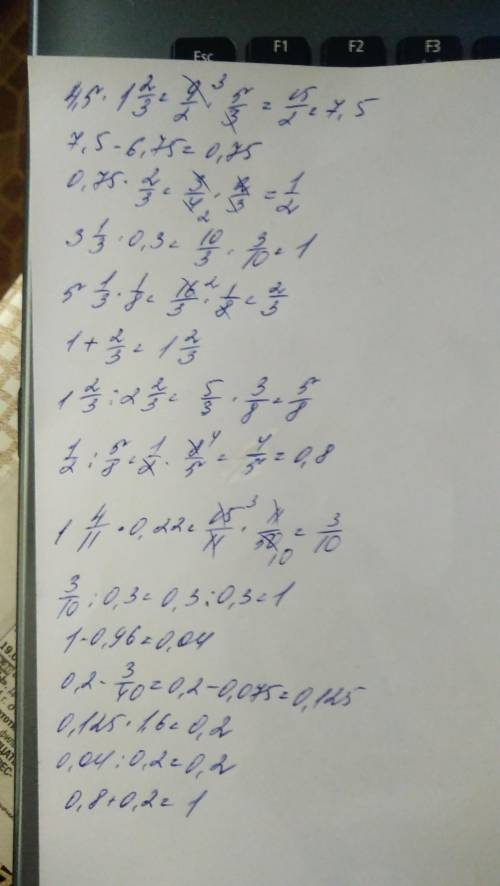 Esc F1 F2 F3
4,5 · 1 2/3 = 9/2 · 3 5/3 = 15/2 = 7,5
7,5 - 6,75 = 0,75
0,75 · 2/3 = 3/4 2 · 2/3 = 1/2
3 1/3 · 0,3 = 10/3 · 3/10 = 1
5 1/3 · 1/8 = 16/3 2 · 1/8 = 2/3
1 + 2/3 = 1 2/3
1 2/3 : 2 2/3 = 5/3 · 3/8 = 5/8
1/2 : 5/8 = 1/2 · 8/5 4 = 4/5 = 0,8
1 4/11 · 0,22 = 15/11 3 · 11/50 10 = 3/10
3/10 : 0,3 = 0,3 : 0,3 = 1
1 - 0,96 = 0,04
0,2 - 3/40 = 0,2 - 0,075 = 0,125
0,125 · 1,6 = 0,2
0,04 : 0,2 = 0,2
0,8 + 0,2 = 1